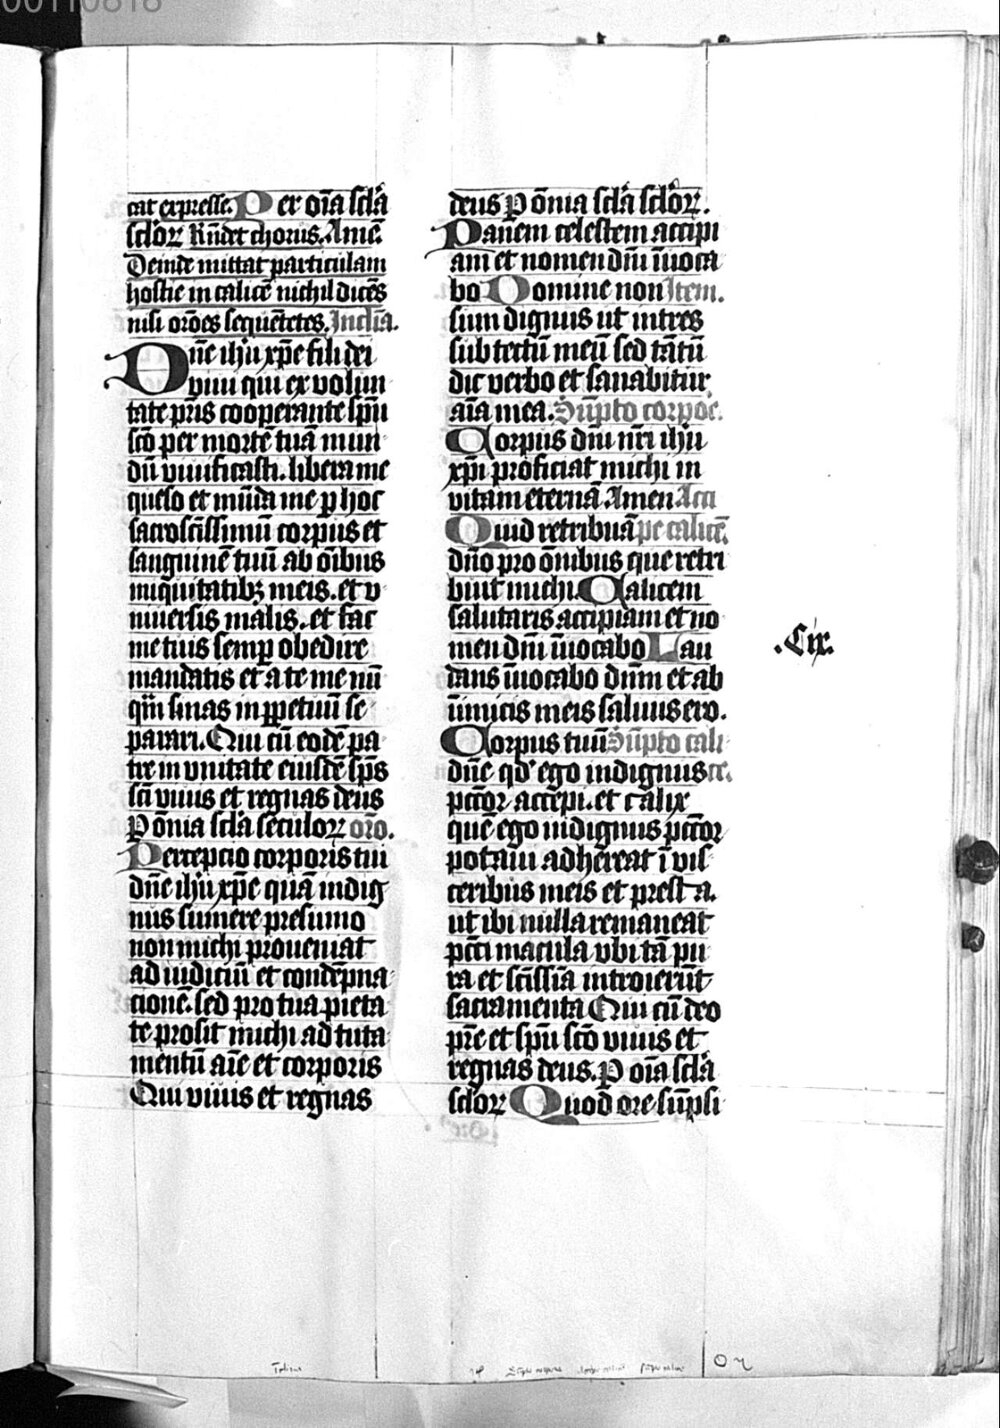 00110818
cat expresse. Per oīa scła
scłoꝝ Rūdet chorus. Amē.
Deinde mittat particulam
hostie in calicē nichil dicēs
nisi orōes sequētetes. Inclīa.
Dn̄e ih̄u xp̄e fili dei
viui qui ex volun
tate pr̄is cooperante sp̄u
sc̄o per mortē tuā mun
dū viuificasti. libera me
queso et mūda me ꝑ hoc
sacrosc̄issimū corpus et
sanguinē tuū ab oībus
iniquitatibꝫ meis. et v
niuersis malis. et fac
me tuis semꝑ obedire
mandatis et a te me nū
qm̄ sinas in ꝑpetuū se
parari. Qui cū eodē pa
tre in vnitate eiusdē sp̄s
sc̄i viuis et regnas deus
Ꝑ ōmia scła seculoꝝ orō.
Percepcio corporis tui
dn̄e ih̄u xp̄e quā indig
nus sumere presumo
non michi proueniat
ad iudiciū et condēpna
cionē. sed pro tua pieta
te prosit michi ad tuta
mentū aīe et corporis
Qui viuis et regnas
deus Ꝑ ōmia scła scłoꝝ.
Panem celestem accipi
am et nomen dn̄i īuoca
bo Domine non Item.
sum dignus ut intres
sub tectū meū sed tātū
dic verbo et sanabitur
aīa mea. Sūpto corpoē.
Corpus dn̄i nr̄i ih̄u
xp̄i proficiat michi in
vitam eternā Amen Acci
Quid retribuā pe calicē.
dn̄o pro ōnibus que retri
buit michi. Calicem
salutaris accipiam et no
men dn̄i īuocabo Lau
dans īuocabo dn̄m et ab
īimicis meis saluus ero.
.Cix.
Corpus tuū Sūpto cali
dn̄e qd' ego indignus ce.
pc̄c̄or accepi. et calix
quē ego indignus pc̄c̄or
potaui adhereat ī vis
ceribus meis et presta.
ut ibi nulla remaneat
pc̄c̄i macula vbi tā pu
ra et sc̄issīa introierūt
sacramenta Qui cū deo
pr̄e et sp̄u sc̄o viuis et
regnas deus. Ꝑ oīa scła
scłoꝝ Quod ore sūpsi